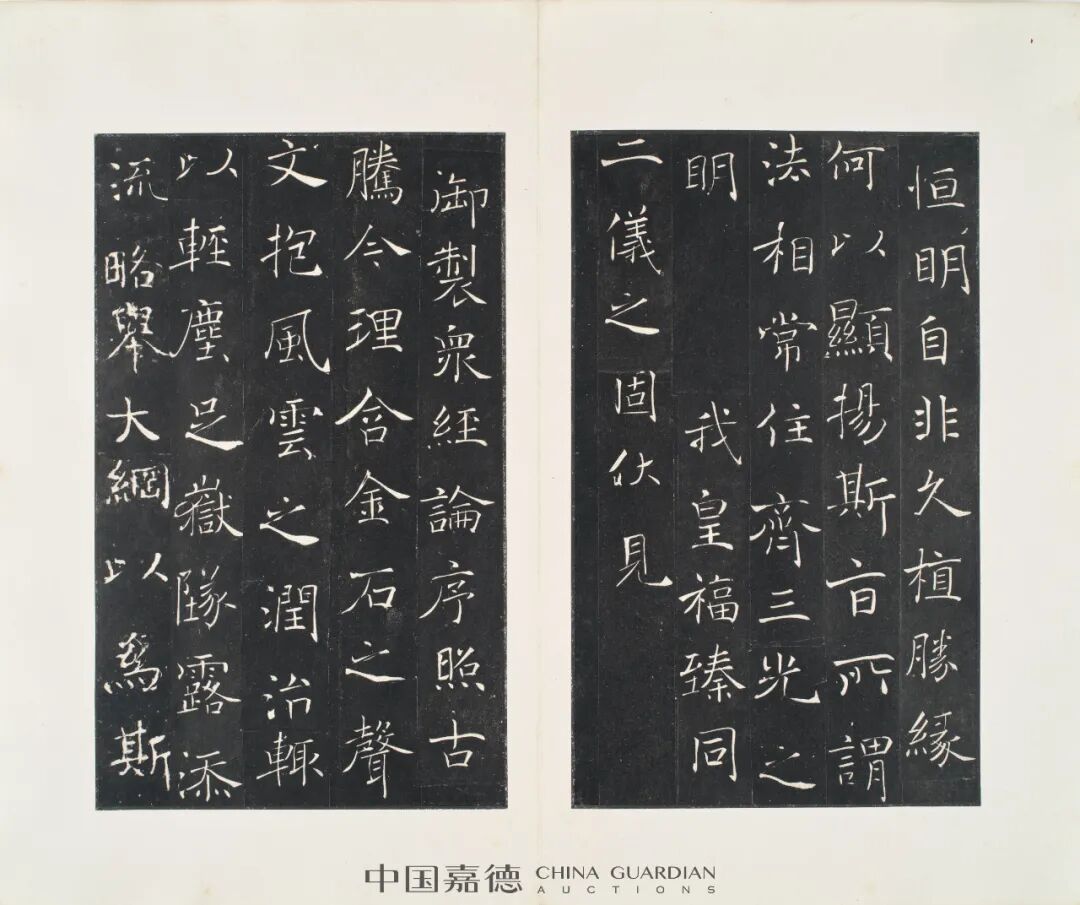 恒明自非久植勝緣
何以顯揚斯旨所謂
法相常住齊三光之
明　我皇福臻同
二儀之固伏見
御製衆經論序照古
騰今理含金石之聲
文抱風雲之潤治輒
以輕塵足嶽墜露添
流略舉大綱以爲斯
中国嘉德 CHINA GUARDIAN
AUCTIONS